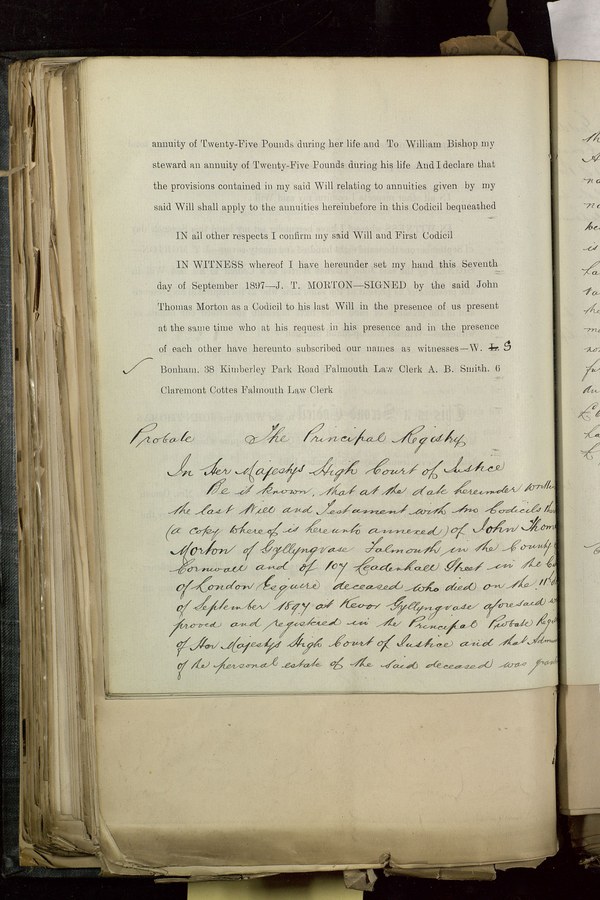 annuity of Twenty-Five Pounds during her life and To William Bishop my
steward an annuity of Twenty-Five Pounds during his life And I declare that
the provisions contained in my said Will relating to annuities given by my
said Will shall apply to the annuities hereinbefore in this Codicil bequeathed
IN all other respects I confirm my said Will and First Codicil
IN WITNESS whereof I have hereunder set my hand this Seventh
day of September 1897—J. T. MORTON—SIGNED by the said John
Thomas Morton as a Codicil to his last Will in the presence of us present
at the same time who at his request in his presence and in the presence
of each other have hereunto subscribed our names as witnesses—W. S
Bonham. 38 Kimberley Park Road Falmouth Law Clerk A. B. Smith. 6
Claremont Cottes Falmouth Law Clerk
Probate The Principal Registry
In Her Majestys High Court of Justice
Be it known, that at the date hereunder
the last Will and Testament with two Codicils
(a copy whereof is hereunto annexed) of John Thom
Morton of Gyllyngvase Falmouth in the County
Cornwall and of 107 Leadenhall Street in the
of London Esquire deceased who died on the 11th
of September 1897 at Kevor Gyllyngvase aforesaid
proved and registered in the Principal Probate
of Her Majestys High Court of Justice and that
of the personal estate of the said deceased was